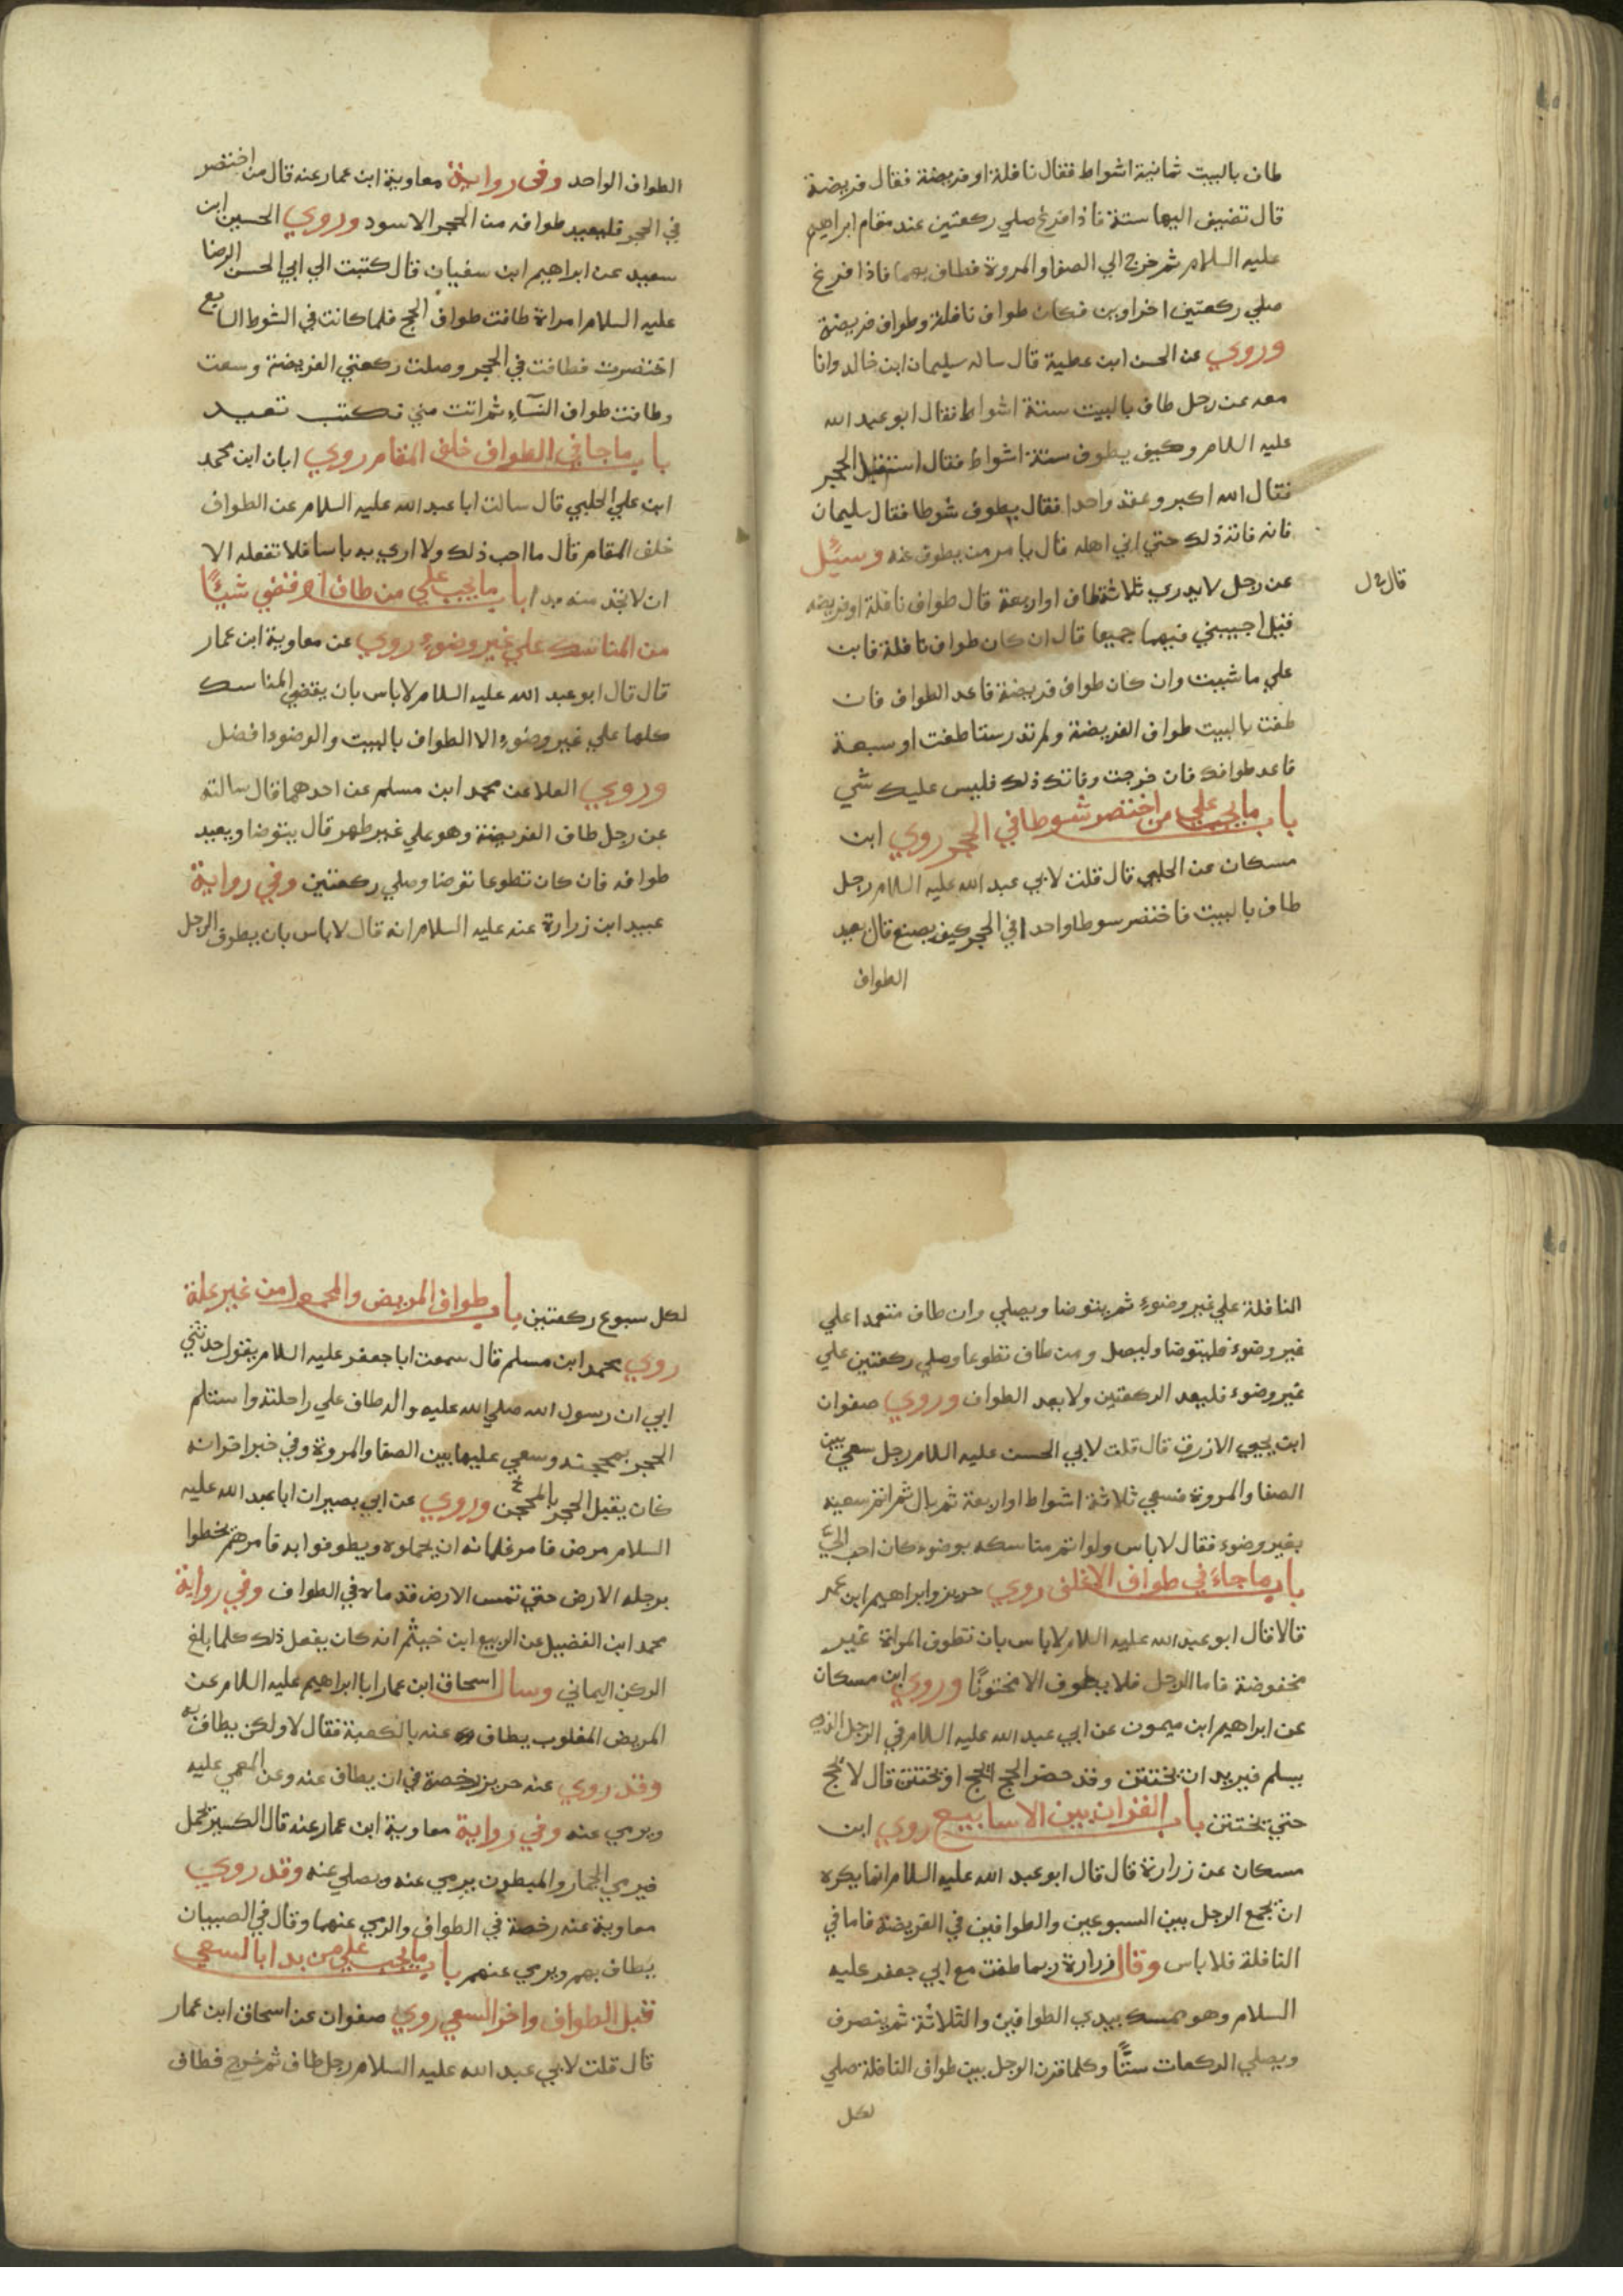 طاف بالبيت ثمانية اشواط فقال نافلة او فريضة فقال فريضة
قال تضيف اليها ستة فاذا فرغ صلي ركعتين عند مقام ابراهيم
عليه السلام ثم خرج الي الصفا والمروة فطاف بهما فاذا فرغ
صلي ركعتين اخراوين فكان طواف نافلة وطواف فريضة
وروي عن الحسن ابن عطية قال ساله سليمان ابن خالد وانا
معه عن رجل طاف بالبيت ستة اشواط فقال ابو عبد الله
عليه السلام وكيف يطوف ستة اشواط فقال استقبل الحجر
فقال الله اكبر وعقد واحدا فقال يطوف شوطا فقال سليمان
فانه فاته ذلك حتي اتي اهله قال يامر من يطوف عنه وسئل
عن رجل لا يدري ثلاثة طاف او اربعة قال طواف نافلة او فريضه
قال
قيل اجيبني فيهما جميعا قال ان كان طواف نافلة فابن
علي ما شيت وان كان طواف فريضة فاعد الطواف فان
طفت بالبيت طواف الفريضة ولم تدر ستا طفت او سبعة
فاعد طوافك فان خرجت وفاتك ذلك فليس عليك شي
باب ما يجب علي من اختصر شوطا في الحجر روي ابن
مسكان عن الحلبي قال قلت لابي عبد الله عليه السلام رجل
طاف بالبيت فاختصر سوطا واحدا في الحجر كيف يصنع قال يعيد
الطواف
الطواف الواحد وفي رواية معاوية ابن عمار عنه قال من اختصر
في الحجر فليعيد طوافه من الحجر الاسود وروي الحسين ابن
سعيد عن ابراهيم ابن سفيان قال كتبت الي ابي الحسن الرضا
عليه السلام امراة طافت طواف الحج فلما كانت في الشوط السابع
اختصرت فطافت في الحجر وصلت ركعتي الفريضة وسعت
وطافت طواف النسآء ثم اتت مني فكتب تعيد
باب ما جا في الطواف خلف المقام روي ابان ابن محمد
ابن علي الحلبي قال سالت ابا عبد الله عليه السلام عن الطواف
خلف المقام قال ما احب ذلك ولا اري به باسا فلا تفعله الا
ان لا تجد منه بدا باب ما يجب علي من طاف او قضي شيـٔا
من المناسك علي غير وضوء روي عن معاوية ابن عمار
قال قال ابو عبد الله عليه السلام لا باس بان يقضي المناسك
كلها علي غير وضوء الا الطواف بالبيت والوضوء افضل
وروي العلا عن محمد ابن مسلم عن احدهما قال سالته
عن رجل طاف الفريضة وهو علي غير طهر قال يتوضا ويعيد
طوافه فان كان تطوعا توضا وصلي ركعتين وفي رواية
عبيد ابن زرارة عنه عليه السلام انه قال لا باس بان يطوف الرجل
النافلة علي غير وضوء ثم يتوضا ويصلي وان طاف متعمدا علي
غير وضوء فليتوضا وليصل ومن طاف تطوعا وصلي ركعتين علي
غير وضوء فليعد الركعتين ولا يعد الطواف وروي صفوان
ابن يحيي الازرق قال قلت لابي الحسن عليه السلام رجل سعي بين
الصفا والمروة فسعي ثلاثة اشواط او اربعة ثم بال ثم اتم سعيه
بغير وضوء فقال لا باس ولو اتم مناسكه بوضوء كان احب اليّ
باب ما جاء في طواف الاغلف روي حريز وابراهيم ابن عمر
قالا قال ابو عبد الله عليه السلام لا باس بان تطوف المراة غير
مخفوضة فاما الرجل فلا يطوف الا مختونًا وروي ابن مسكان
عن ابراهيم ابن ميمون عن ابي عبد الله عليه السلام في الرجل الذي
يسلم فيريد ان يختتن وقد حضر الحج ايحج او يختتن قال لا يحج
حتي يختتن باب القران بين الاسابيع روي ابن
مسكان عن زرارة قال قال ابو عبد الله عليه السلام انما يكره
ان يجمع الرجل بين السبوعين والطوافين في الفريضة فاما في
النافلة فلا باس وقال زرارة ربما طفت مع ابي جعفر عليه
السلام وهو ممسك بيدي الطوافين والثلاثة ثم ينصرف
ويصلي الركعات ستًّا وكلما قرن الرجل بين طواف النافلة صلي
لكل
لكل سبوع ركعتين باب طواف المريض والمحمول من غير علة
روي محمد ابن مسلم قال سمعت ابا جعفر عليه السلام يقول حدثني
ابي ان رسول الله صلي الله عليه واله طاف علي راحلته واستلم
الحجر بمحجنه وسعي عليها بين الصفا والمروة وفي خبر اخر انه
كان يقبل الحجر بالمحجن وروي عن ابي بصير ان ابا عبد الله عليه
السلام مرض فامر غلمانه ان يحملوه ويطوفوا به فامرهم يخطوا
برجله الارض حتي تمس الارض قدماه في الطواف وفي رواية
محمد ابن الفضيل عن الربيع ابن خيثم انه كان يفعل ذلك كلما بلغ
الركن اليماني وسال اسحاق ابن عمار ابا ابراهيم عليه السلام عن
المريض المغلوب يطاف عنه بالكعبة فقال لا ولكن يطاف به
وقد روي عنه حريز رخصة في ان يطاف عنه وعن المغمي عليه
ويرمي عنه وفي رواية معاوية ابن عمار عنه قال الكسير يحمل
فيرمي الجمار والمبطون يرمي عنه ويصلي عنه وقد روي
معاوية عنه رخصة في الطواف والرمي عنهما وقال في الصبيان
يطاف بهم ويرمي عنهم باب ما يجب علي من بدا بالسعي
قبل الطواف واخر السعي روي صفوان عن اسحاق ابن عمار
قال قلت لابي عبد الله عليه السلام رجل طاف ثم خرج فطاف